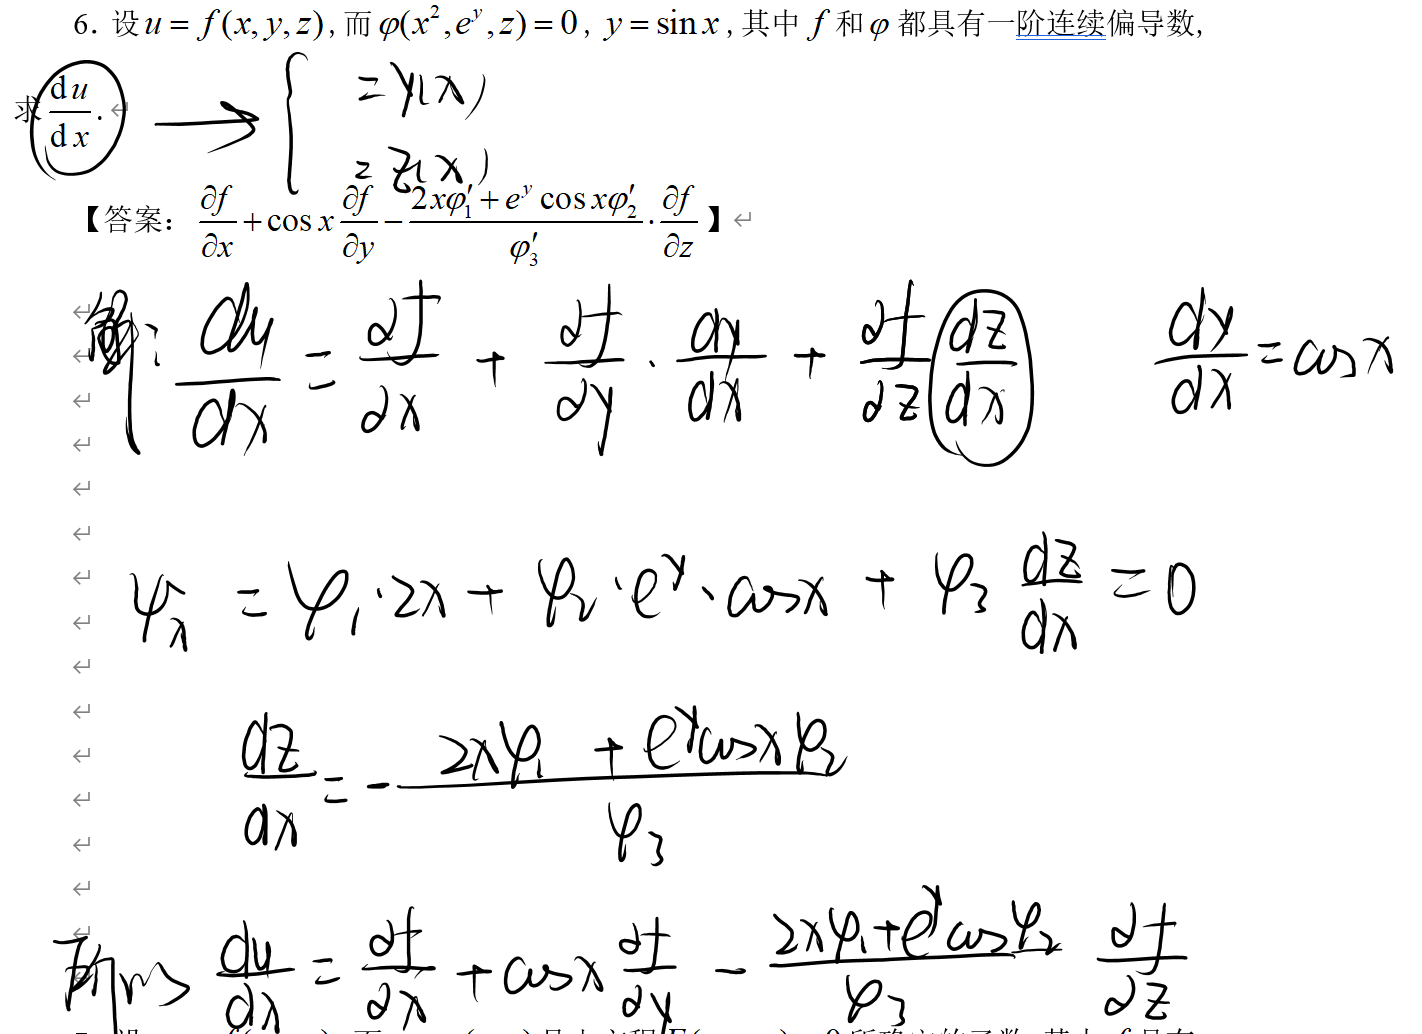 6. 设 u = f(x, y, z), 而 φ(x², e^y, z) = 0, y = sin x, 其中 f 和 φ 都具有一阶连续偏导数,
求 du/dx.
→ { = y(x)
= z(x)
【答案: ∂f/∂x + cos x ∂f/∂y − (2xφ′₁ + e^y cos xφ′₂)/φ′₃ · ∂f/∂z】
解: du/dx = ∂f/∂x + ∂f/∂y · dy/dx + ∂f/∂z dz/dx    dy/dx = cos x
φx = φ₁·2x + φ₂·e^y·cos x + φ₃ dz/dx = 0
dz/dx = − (2xφ₁ + e^y cos x φ₂)/φ₃
所以 du/dx = ∂f/∂x + cos x ∂f/∂y − (2xφ₁ + e^y cos φ₂)/φ₃ ∂f/∂z